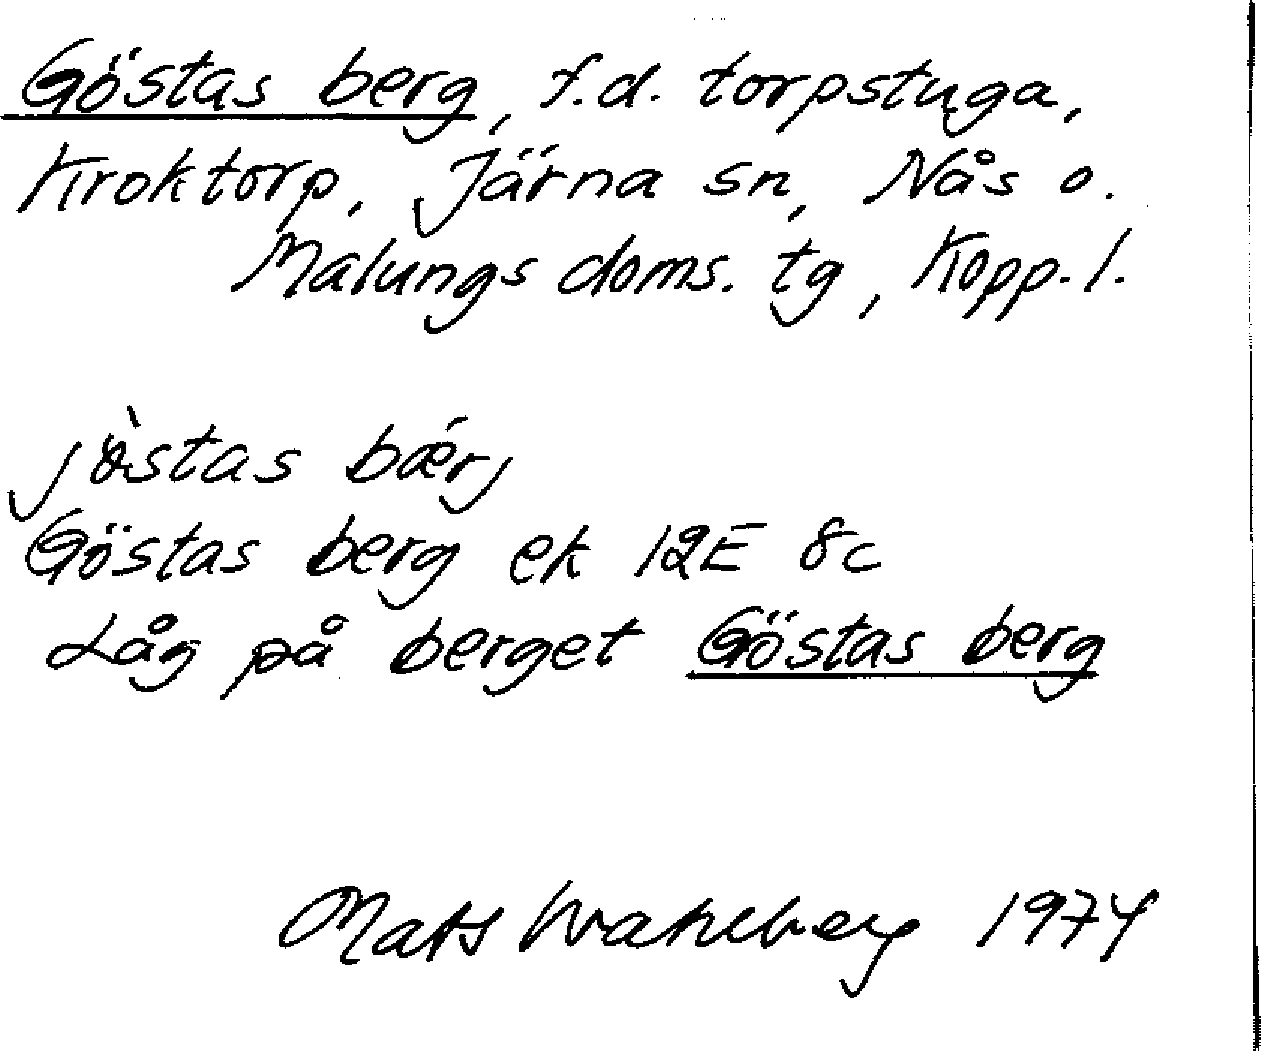 Göstas berg, f.d. torpstuga,
Kroktorp, Järna sn, Nås o.
Malungs doms. tg, Kopp. l.
jöstas bærj
Göstas berg ek 12E 8c
Låg på berget Göstas berg
Mats Wahlberg 1974